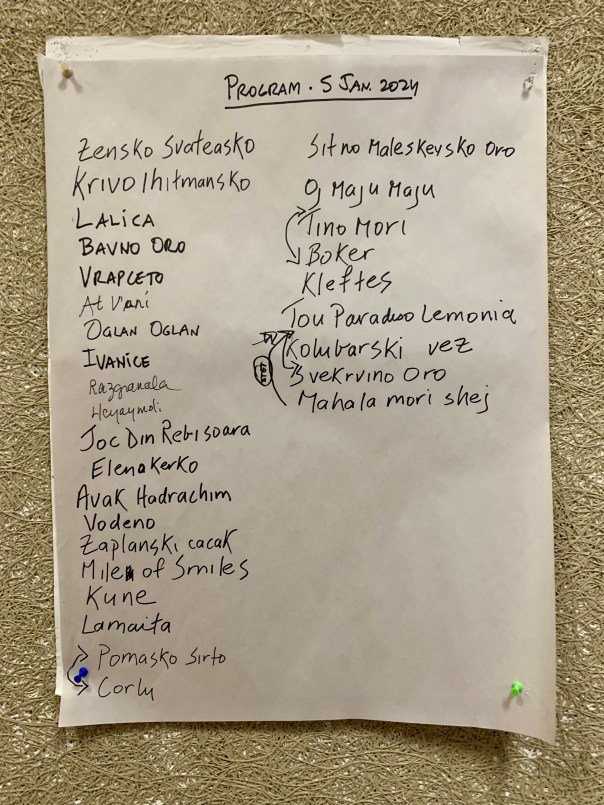 PROGRAM. 5 JAN. 2024
Zensko Svateasko
Krivo Ihitmansko
LALICA
BAVNO ORO
VRAPCETO
At V'ani
OGLAN OGLAN
IVANICE
Razgranala
Joc Din Rebisoara
Elenakerko
Avak Hadrachim
Vodeno
Zaplanski cacak
Miles of Smiles
Kune
Lamaita
Pomasko Sirto
Corlu
Sitno Maleskevsko Oro
Oj Maju Maju
Tino Mori
Boker
Kleftes
Tou Paradiso Lemonia
Kolubarski vez
Svekrvino Oro
Mahala mori shej